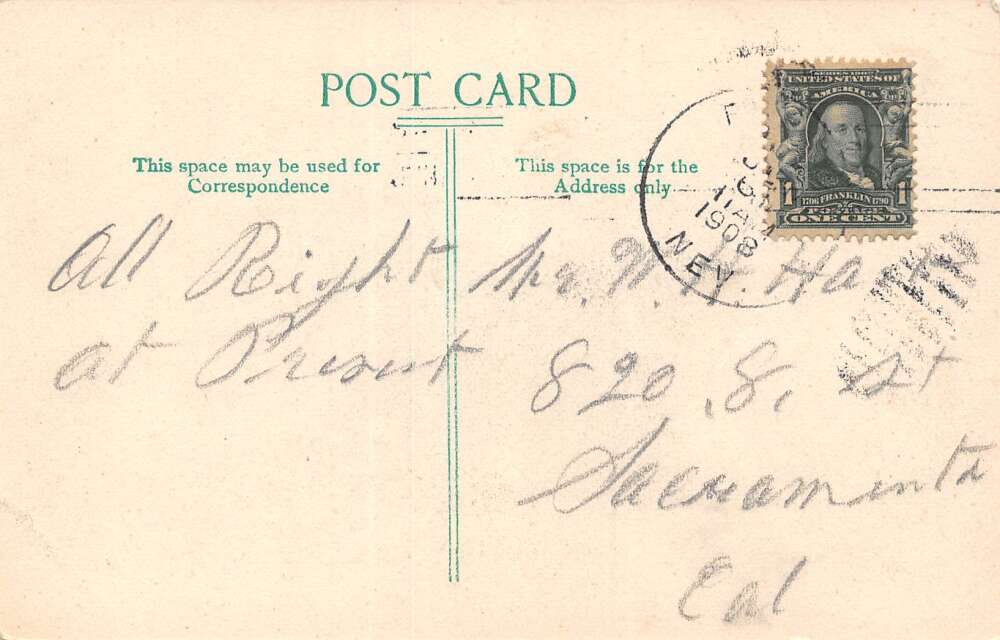 POST CARD
This space may be used for
Correspondence
This space is for the
Address only
SERIES 1902
UNITED STATES OF
AMERICA
1 1
1706 FRANKLIN 1790
POSTAGE
ONE CENT
11 AM
1908
NEV
All Right
at Present
Mr. W. H. Hart
820 8, St
Sacramento
Cal